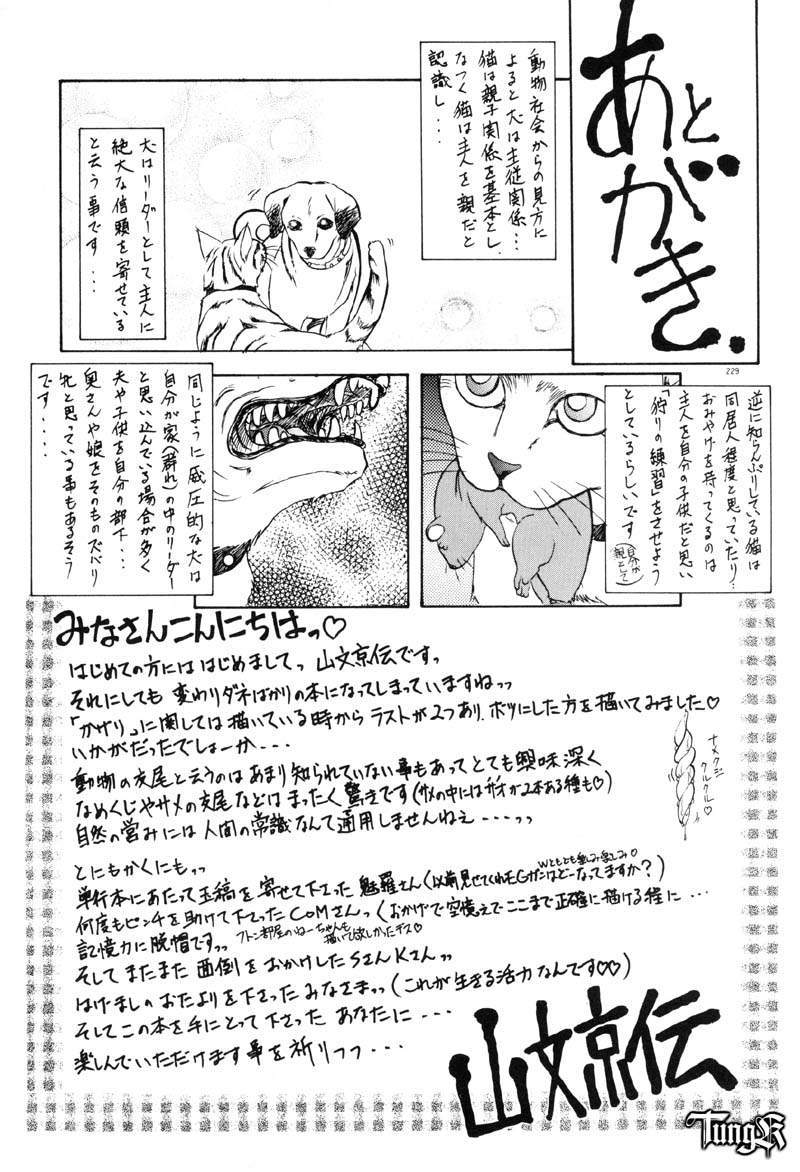 あとがき.
動物社会からの見方に
よると犬は主従関係…
猫は親子関係を基本とし
なつく猫は主人を親だと
認識し・・・
犬はリーダーとして主人に
絶大な信頼を寄せている
と云う事です・・・
229
逆に知らんぷりしている猫は
同居人程度と思っていたり…
おみやげを持ってくるのは
主人を自分の子供だと思い
「狩りの練習」をさせよう
としているらしいです
(自分が親として)
同じように威圧的な犬は
自分が家(群れ)の中のリーダー
と思い込んでいる場合が多く
夫や子供を自分の部下…
奥さんや娘をそのものズバリ
牝と思っている事もあるそう
です・・・・
みなさんこんにちはっ♡
はじめての方には はじめましてっ 山文京伝ですっ
それにしても 変わりダネばかりの本になってしまっていますねっっ
「かザリ」に関しては描いている時から ラストが2つあり、ボツにした方を描いてみました♡
いかがだったでしょーか・・・
動物の交尾と云うのは あまり知られていない事もあって とても興味深く
なめくじやサメの交尾などは まったく驚きです(サメの中にはオが2本ある種も♡)
自然の営みには 人間の常識なんて通用しませんねぇ・・・・っっ
ナメクジ
クルクル♡
とにもかくにもっっ
単行本にあたって玉稿を寄せて下さった 魅羅さん(以前見せてくれたGガンはどーなってますか?)
何度もピンチを助けて下さったCOMさんっ(おかげで空憶えでここまで正確に描ける程に・・・
記憶力に脱帽ですっっ
フトン部屋のねーちゃんも
描いて欲しかったデス♡
そしてまたまた 面倒をおかけしたSさんKさんっっ
はげましのおたよりを下さったみなさまっっ(これが生きる活力なんです♡♡)
そしてこの本を手にとって下さった あなたに・・・
楽しんでいただけます事を祈りっっ・・・
山文京伝
TungK